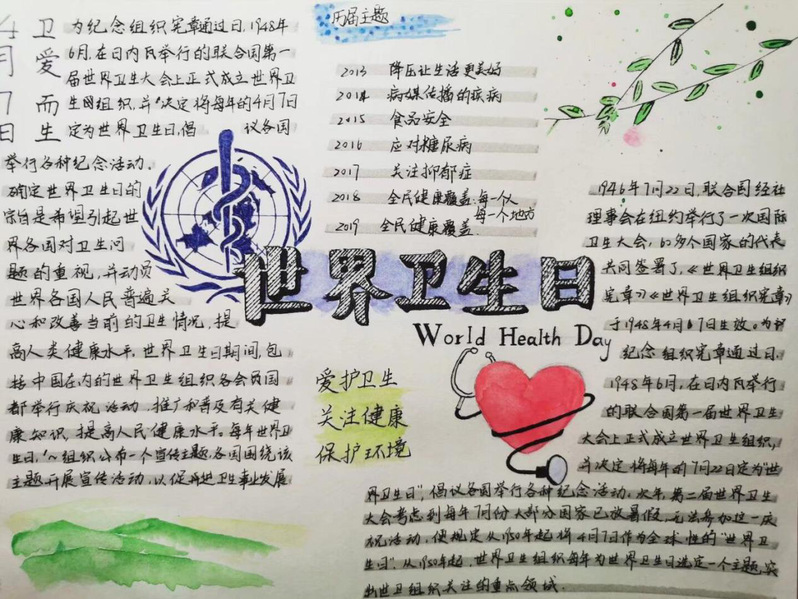 4月7日
卫爱而生
为纪念组织宪章通过日,1948年
6月,在日内瓦举行的联合国第一
届世界卫生大会上正式成立世界卫
生组织,并决定将每年的4月7日
定为世界卫生日,倡议各国
举行各种纪念活动.
确定世界卫生日的
宗旨是希望引起世
界各国对卫生问
题的重视,并动员
世界各国人民普遍关
心和改善当前的卫生情况,提
高人类健康水平.世界卫生日期间,包
括中国在内的世界卫生组织各会员国
都举行庆祝活动.推广和普及有关健
康知识,提高人民健康水平.每年世界卫
生日,~组织公布一个宣传主题,各国围绕该
主题开展宣传活动,以促进卫生事业发展
历届主题
2013 降压让生活更美好
2014 病媒传播的疾病
2015 食品安全
2016 应对糖尿病
2017 关注抑郁症
2018 全民健康覆盖:每一个人
每一个地方
2019 全民健康覆盖.
世界卫生日
World Health Day
爱护卫生
关注健康
保护环境
1946年7月22日,联合国经社
理事会在纽约举行了一次国际
卫生大会,60多个国家的代表
共同签署了,《世界卫生组织
宪章》《世界卫生组织宪章》
于1948年4月7日生效。为
纪念组织宪章通过日,
1948年6月,在日内瓦举行
的联合国第一届世界卫生
大会上正式成立世界卫生组织,
并决定将每年的7月22日定为"世
界卫生日",倡议各国举行各种纪念活动.次年,第二届世界卫生
大会考虑到每年7月份大部分国家已放暑假,无法参加这一庆
祝活动,便规定从1950年起将4月7日作为全球性的"世界卫
生日".从1950年起,世界卫生组织每年为世界卫生日选定一个主题,突
出世卫组织关注的重点领域.